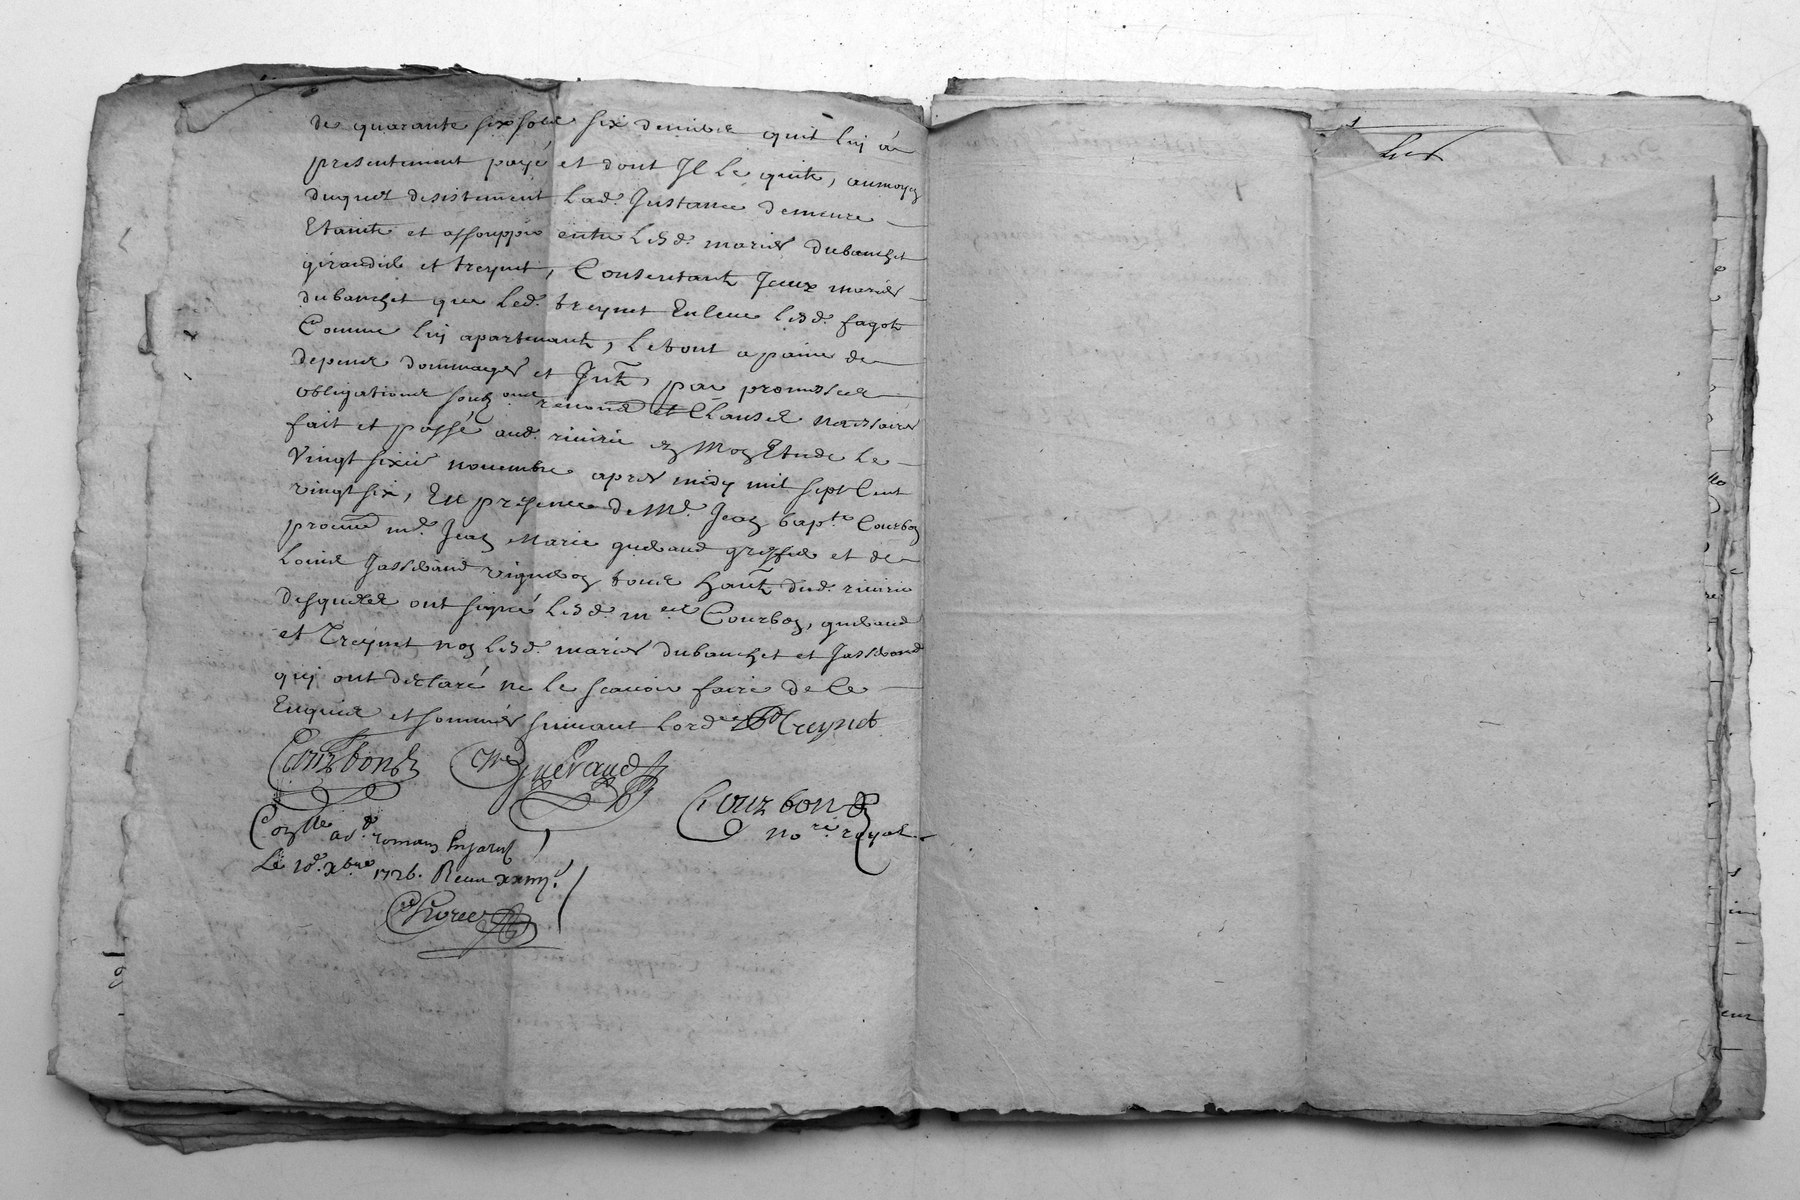 de quarante six sols six deniers quil luy a
presentement payé et dont Il le quitte, aumoyen
duquel desistement lad. Instance demeure
Etainte et assouppie entre lesd. mariés dubanchet
giraudole et treynet, Consentant Iceux mariés
dubanchet que led. treynet Enleve lesd. fagots
Comme luy apartenants, le tout a paine de
depens dommages et Intz, par promesses
obligations soubz renonc et Clauses necessaires
fait et passé aud. rivirie en Mon Etude le
Vingt sixie novembre apres midy mil sept Cent
vingt six, En presence de Me. Jean bapte Courbon
procur me. Jean Marie gueraud greffier et de
Louis Jasserand vigneron tous habts dud. rivirie
desquels ont signé lesd. mes Courbon, gueraud
et Treynet non lesd. mariés dubanchet et Jasserand
qui ont declaré ne le scavoir faire de Ce
Enquis et sommés suivant lordce Treynet
Courbon Gueraud
Courbon
nore. royal
Conlle a St romain en Jarest
Le 10e. Xbre 1726. Receu